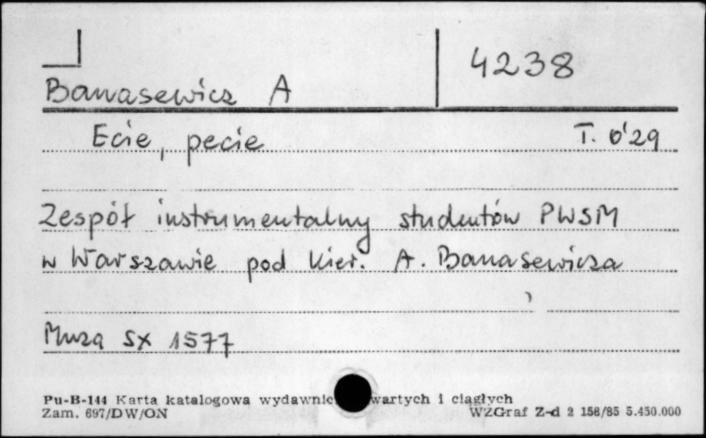 4238
Banasewicz A
Ecie, pecie T. 0'29
Zespół instrumentalny studentów PWSM
w Warszawie pod kier. A. Banasewicza
Muza SX 1577
Pu-B-144 Karta katalogowa wydawnic wartych i ciągłych
Zam. 697/DW/ON WZGraf Z-d 2 158/85 5.450.000